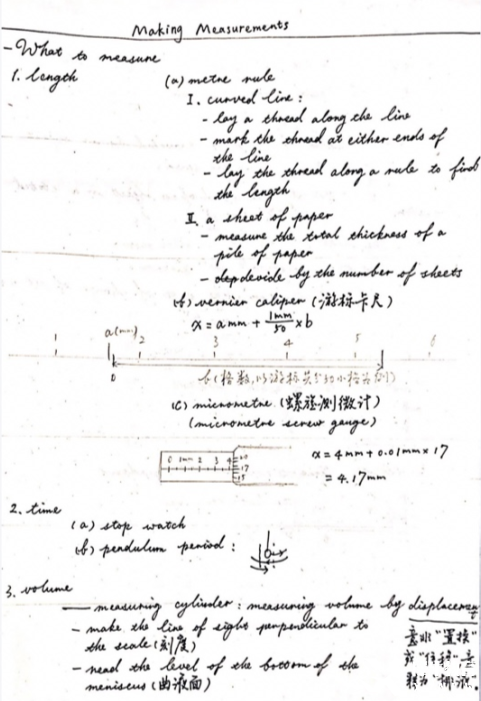 Making Measurements
- What to measure
1. length
(a) metre rule
I. curved line:
- lay a thread along the line
- mark the thread at either ends of
the line
- lay the thread along a rule to find
the length
II. a sheet of paper
- measure the total thickness of a
pile of paper
- devide by the number of sheets
(b) vernier caliper (游标卡尺)
x = a mm + 1mm/50 × b
a(mm)
1 2 3 4 5 6
0
(c) micrometre (螺旋测微计)
(micrometre screw gauge)
0 1mm 2 3 4
20
17
15
x = 4mm + 0.01mm × 17
= 4.17mm
2. time
(a) stop watch
(b) pendulum period:
3. volume
— measuring cylinder: measuring volume by displacement
- make the line of sight perpendicular to
the scale (刻度)
- read the level of the bottom of the
meniscus (曲液面)
意非"置换"
或"位移"